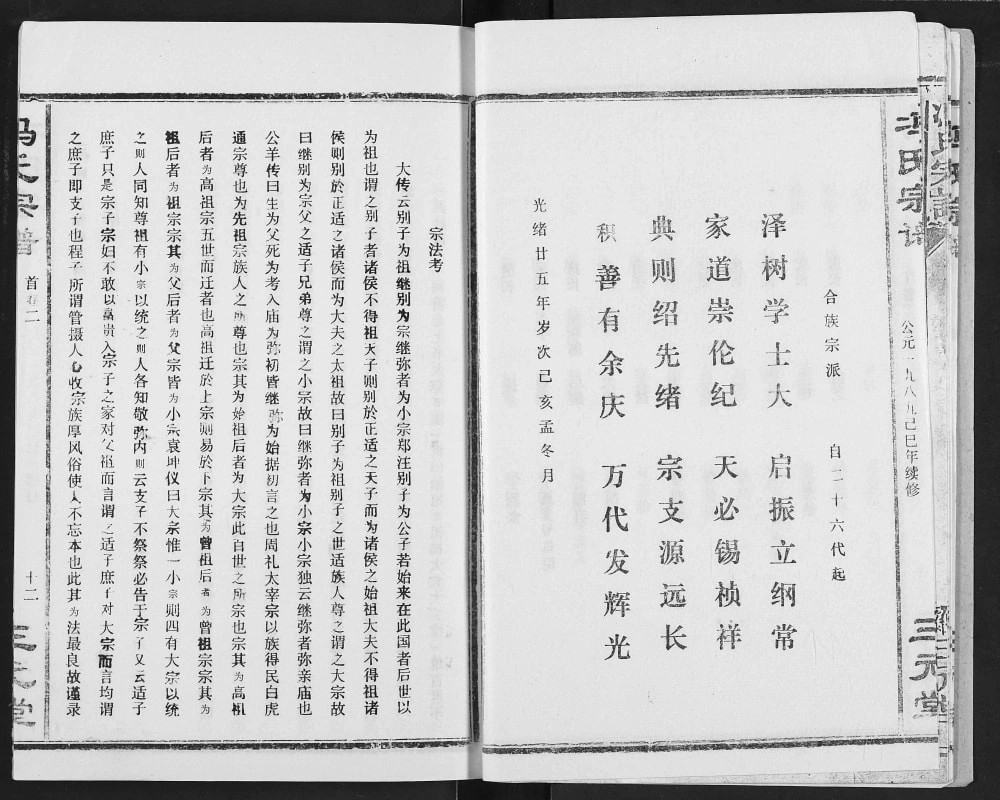 冯氏宗谱
公元一九八九己巳年续修
三元堂
合族宗派 自二十六代起
泽树学士大 启振立纲常
家道崇伦纪 天必锡祯祥
典则绍先绪 宗支源远长
积善有余庆 万代发辉光
光绪廿五年岁次己亥孟冬月
宗法考
大传云别子为祖继别为宗继弥者为小宗郑汪别子为公子若始来在此国者后世以
为祖也谓之别子者诸侯不得祖天子则别於正适之天子而为诸侯之始祖大夫不得祖诸
侯则别於正适之诸侯而为大夫之太祖故曰别子为祖别子之世适族人尊之谓之大宗故
曰继别为宗父之适子兄弟尊之谓之小宗故曰继弥者为小宗小宗独云继弥者弥亲庙也
公羊传曰生为父死为考入庙为弥初皆继弥为始据初言之也周礼太宰宗以族得民白虎
通宗尊也为先祖宗族人之所尊也宗其为始祖后者为大宗此百世之所宗也宗其为高祖
后者为高祖宗五世而迁者也高祖迁於上宗则易於下宗其为曾祖后者为曾祖宗宗其为
祖后者为祖宗宗其为父后者为父宗皆为小宗袁坤仪曰大宗惟一小宗则四有大宗以统
之则人同知尊祖有小宗以统之则人各知敬弥内则云支子不祭祭必告于宗子又云适子
庶子只是宗子宗妇不敢以富贵入宗子之家对父祖而言谓之适子庶子对大宗而言均谓
之庶子即支子也程子所谓管摄人心收宗族厚风俗使人不忘本也此其为法最良故谨录
冯氏宗谱
首卷二
十二
三元堂